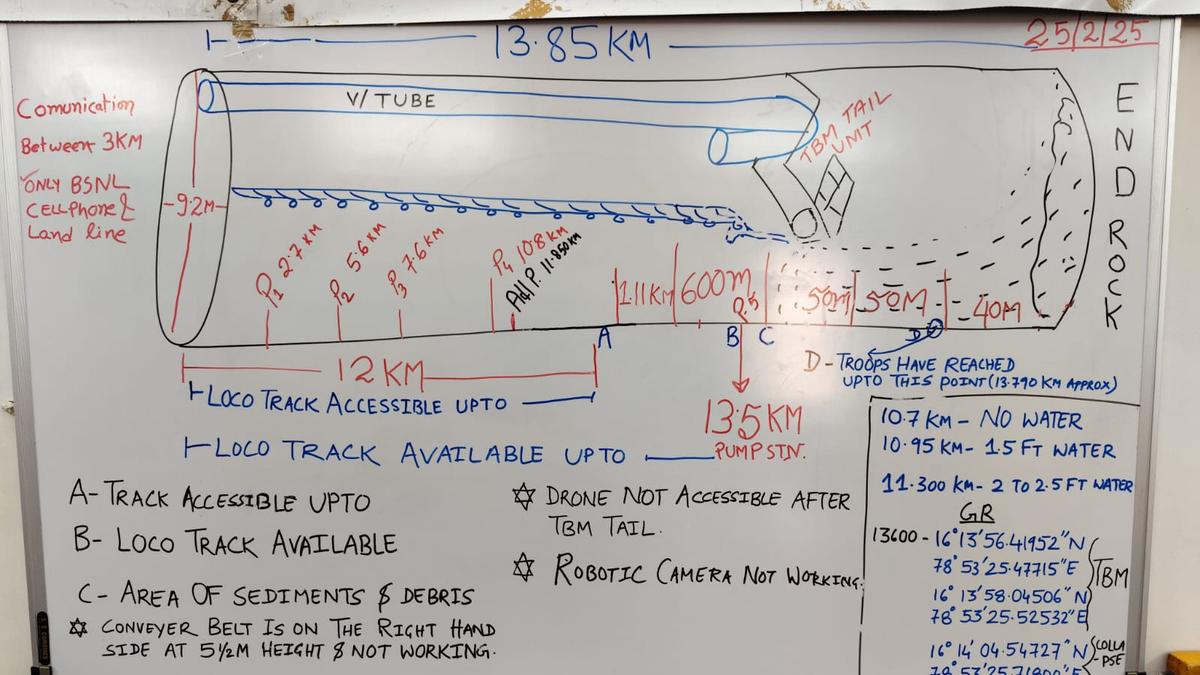 13.85 KM
25/2/25
Comunication
Between 3KM
ONLY BSNL
CELLPHONE &
Land line
V/ TUBE
TBM TAIL
UNIT
END ROCK
9.2M
P1 2.7 KM
P2 5.6 KM
P3 7.6 KM
P4 10.8 KM
Adl P. 11.850KM
1.11 KM
600m
P.5
50m
50M
40M
A
B
C
D
12 KM
LOCO TRACK ACCESSIBLE UPTO
13.5 KM
PUMP STN.
LOCO TRACK AVAILABLE UPTO
D - TROOPS HAVE REACHED
UPTO THIS POINT (13.790 KM APPROX)
A- TRACK ACCESSIBLE UPTO
B- LOCO TRACK AVAILABLE
C- AREA OF SEDIMENTS & DEBRIS
CONVEYER BELT IS ON THE RIGHT HAND
SIDE AT 5½M HEIGHT & NOT WORKING.
DRONE NOT ACCESSIBLE AFTER
TBM TAIL.
ROBOTIC CAMERA NOT WORKING.
10.7 KM - NO WATER
10.95 KM - 1.5 FT WATER
11.300 KM - 2 TO 2.5 FT WATER
GR
13600 - 16°13'56.41952"N
78°53'25.47715"E
TBM
16°13'58.04506"N
78°53'25.52532"E
16°14'04.54727"N
COLLA
-PSE